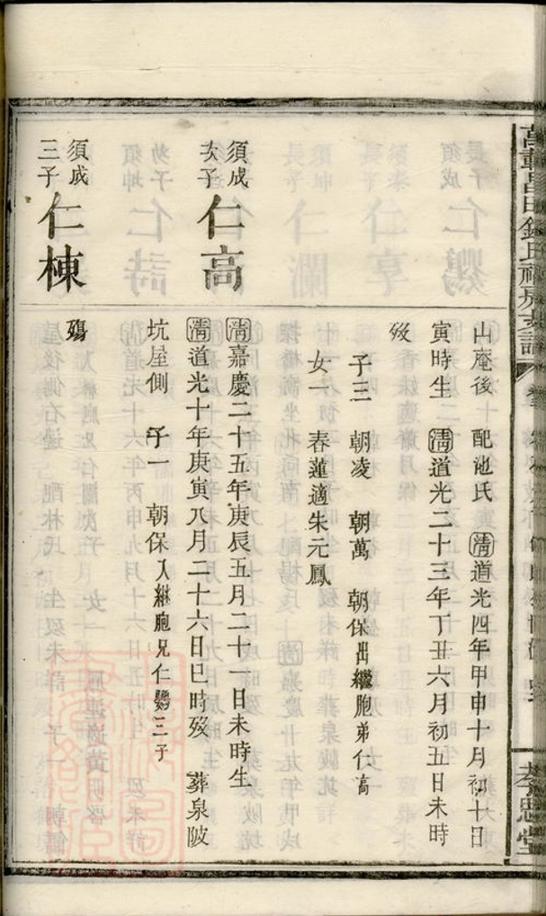 萬載昌田鍾氏
支譜
孝思堂
山庵後 配池氏 清道光四年甲申十月初十日
寅時生 清道光二十三年丁丑六月初五日未時
歿
子三 朝凌 朝萬 朝保出繼胞弟仁高
女一 春蓮適朱元鳳
須成
次子
仁高
清嘉慶二十五年庚辰五月二十一日未時生
清道光十年庚寅八月二十六日巳時歿 葬泉陂
坑屋側 子一 朝保入繼胞兄仁鸚三子
須成
三子
仁棟
殤